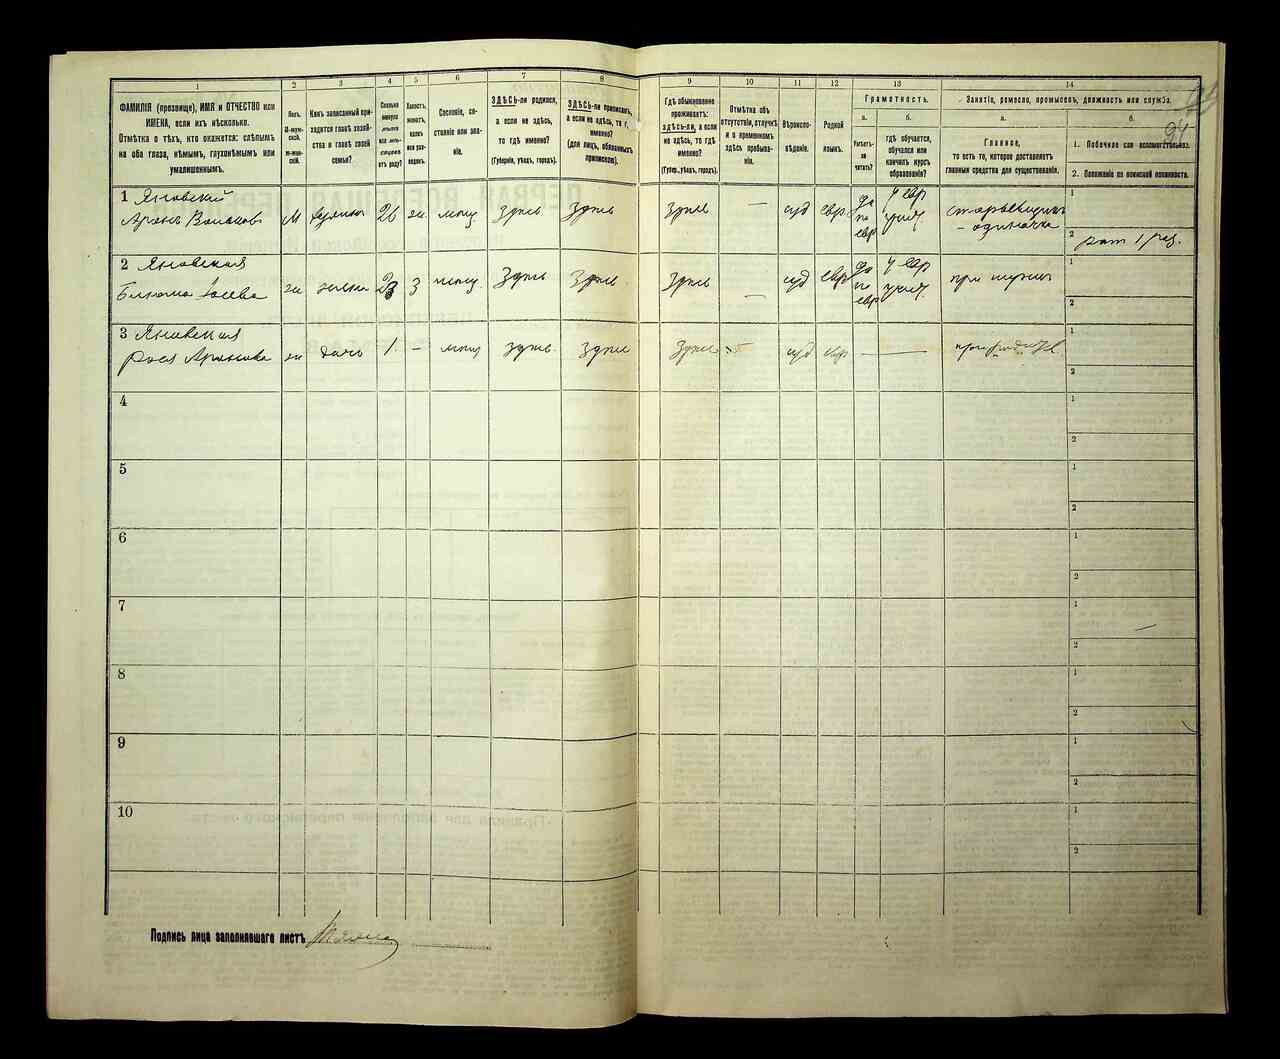 94
1 2 3 4 5 6 7 8 9 10 11 12 13 14
ФАМИЛІЯ (прозвище), ИМЯ и ОТЧЕСТВО или
ИМЕНА, если ихъ нѣсколько.
Отмѣтка о тѣхъ, кто окажется: слѣпымъ
на оба глаза, нѣмымъ, глухонѣмымъ или
умалишеннымъ.
Полъ.
М-муж-
ской.
Ж-жен-
скій.
Какъ записанный при-
ходится главѣ хозяй-
ства и главѣ своей
семьи?
Сколько
минуло
лѣтъ
или мѣ-
сяцевъ
отъ роду?
Холостъ,
женатъ,
вдовъ
или раз-
веденъ.
Сословіе, со-
стояніе или зва-
ніе.
ЗДѢСЬ-ли родился,
а если не здѣсь,
то гдѣ именно?
(Губернія, уѣздъ, городъ).
ЗДѢСЬ-ли приписанъ,
а если не здѣсь, то гдѣ
именно?
(для лицъ, обязанныхъ
припискою).
Гдѣ обыкновенно
проживаетъ:
здѣсь-ли, а если
не здѣсь, то гдѣ
именно?
(Губер., уѣздъ, городъ).
Отмѣтка объ
отсутствіи, отлучкѣ
и о временномъ
здѣсь пребыва-
ніи.
Вѣроиспо-
вѣданіе.
Родной
языкъ.
Грамотность.
а.
Умѣетъ-
ли
читать?
б.
гдѣ обучается,
обучался или
кончилъ курсъ
образованія?
Занятіе, ремесло, промыселъ, должность или служба.
а.
Главное,
то есть то, которое доставляетъ
главныя средства для существованія.
б.
1. Побочное или вспомогательное.
2. Положеніе по воинской повинности.
1 Яновскій
Аронъ М 26 жн мѣщ. здѣсь здѣсь здѣсь — іуд евр да по евр у евр учит
- одиночка
1
2 рат 1 раз.
2 Яновская
Блюма Іосева жн жена 23 З мѣщ. здѣсь здѣсь здѣсь — іуд евр да по евр у евр учит при мужѣ
1
2
3 Яновская
Рося Аронова жн дочь 1 - мѣщ здѣсь здѣсь здѣсь іуд евр — —
1
2
4
1
2
5
1
2
6
1
2
7
1
2
8
1
2
9
1
2
10
1
2
Подпись лица заполнявшаго листъ